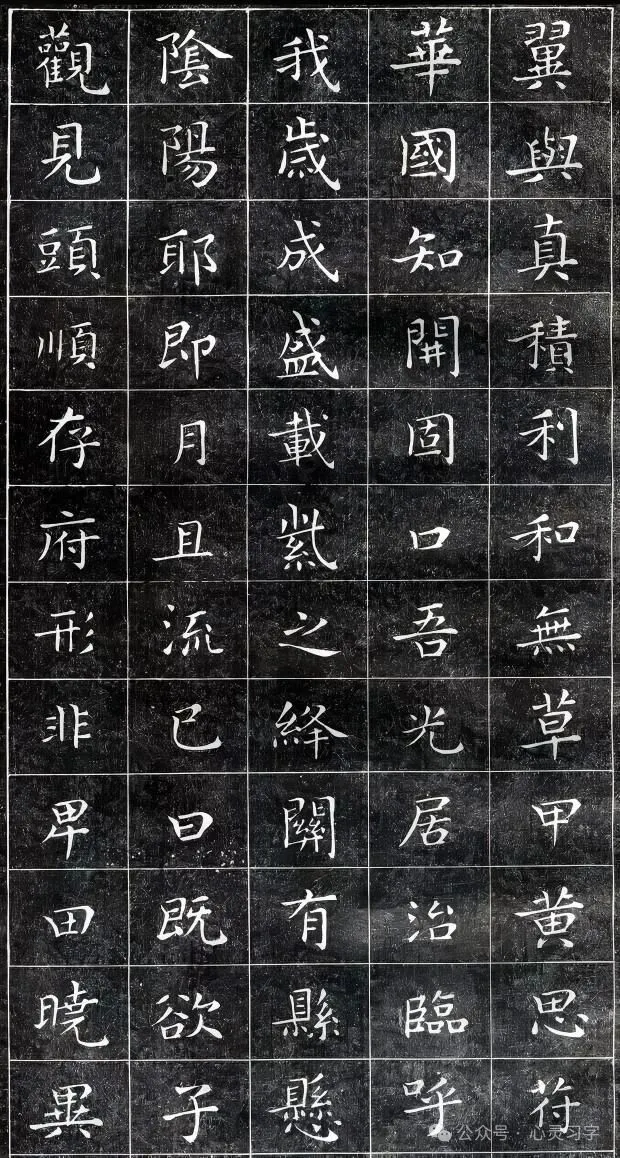 翼與真積利和無草甲黄思苻
華國知開固口吾光居治臨呼
我歲成盛載紫之絳關有縣懸
陰陽耶即月且流已曰既欲子
觀見頭順存府形非卑田曉異
公众号 · 心灵习字